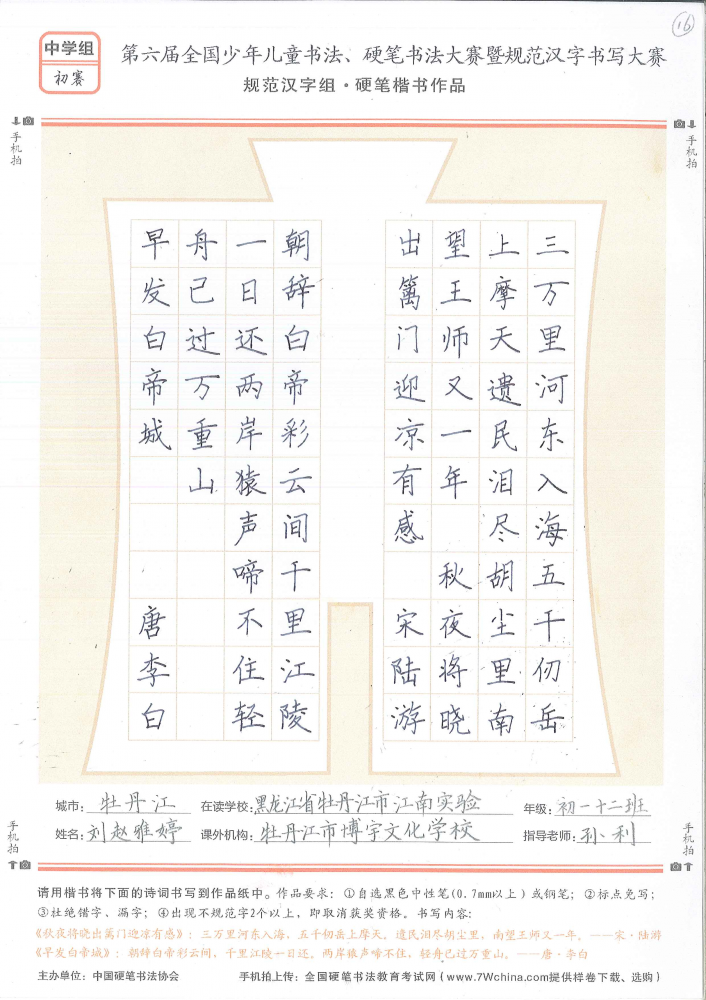 16
中学组
初赛
第六届全国少年儿童书法、硬笔书法大赛暨规范汉字书写大赛
规范汉字组·硬笔楷书作品
手机拍
手机拍
三万里河东入海五千仞岳
上摩天遗民泪尽胡尘里南
望王师又一年 秋夜将晓
出篱门迎凉有感 宋陆游
朝辞白帝彩云间千里江陵
一日还两岸猿声啼不住轻
舟已过万重山
早发白帝城 唐李白
城市：牡丹江 在读学校：黑龙江省牡丹江市江南实验 年级：初一十二班
姓名：刘赵雅婷 课外机构：牡丹江市博宇文化学校 指导老师：孙利
手机拍
手机拍
请用楷书将下面的诗词书写到作品纸中。作品要求：①自选黑色中性笔(0.7mm以上)或钢笔；②标点免写；
③杜绝错字、漏字；④出现不规范字2个以上，即取消获奖资格。书写内容：
《秋夜将晓出篱门迎凉有感》：三万里河东入海，五千仞岳上摩天。遗民泪尽胡尘里，南望王师又一年。——宋·陆游
《早发白帝城》：朝辞白帝彩云间，千里江陵一日还。两岸猿声啼不住，轻舟已过万重山。——唐·李白
主办单位：中国硬笔书法协会 手机拍上传：全国硬笔书法教育考试网（www.7Wchina.com提供样卷下载、选购）